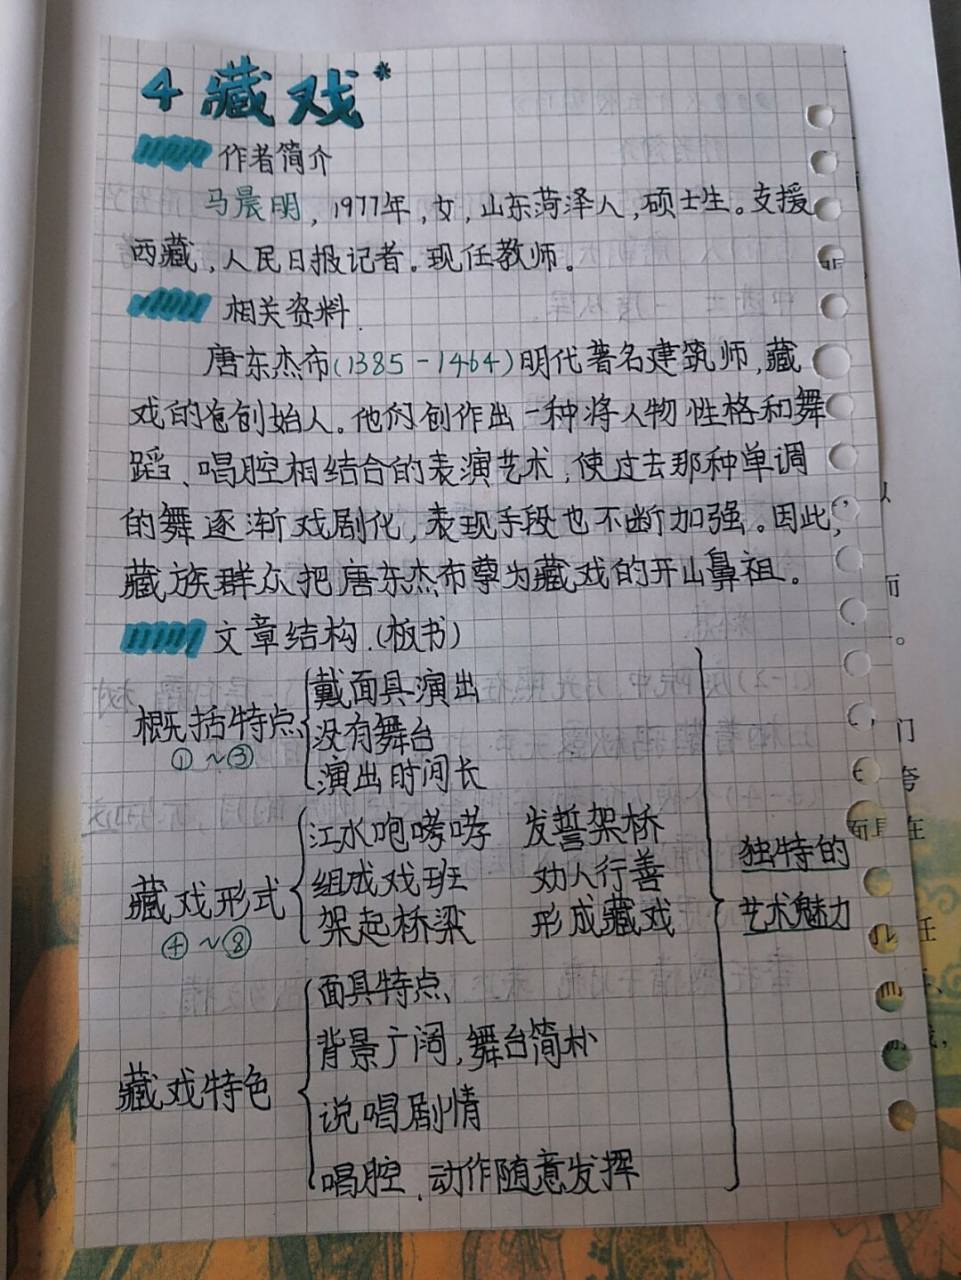 4 藏戏*
作者简介
马晨明，1977年，女，山东菏泽人，硕士生。支援
西藏，人民日报记者。现任教师。
相关资料.
唐东杰布(1385-1464)明代著名建筑师，藏
戏的创始人。他们创作出一种将人物性格和舞
蹈、唱腔相结合的表演艺术，使过去那种单调
的舞逐渐戏剧化，表现手段也不断加强。因此，
藏族群众把唐东杰布尊为藏戏的开山鼻祖。
文章结构.(板书)
概括特点
①~③
戴面具演出
没有舞台
演出时间长
藏戏形式
④~⑧
江水咆哮 发誓架桥
组成戏班 劝人行善
架起桥梁 形成藏戏
藏戏特色
面具特点、
背景广阔，舞台简朴
说唱剧情
唱腔、动作随意发挥
独特的
艺术魅力